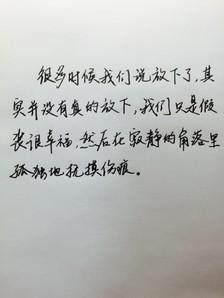 很多时候我们说放下了，其
实并没有真的放下，我们只是假
装很幸福，然后在寂静的角落里
孤独地抚摸伤痕。